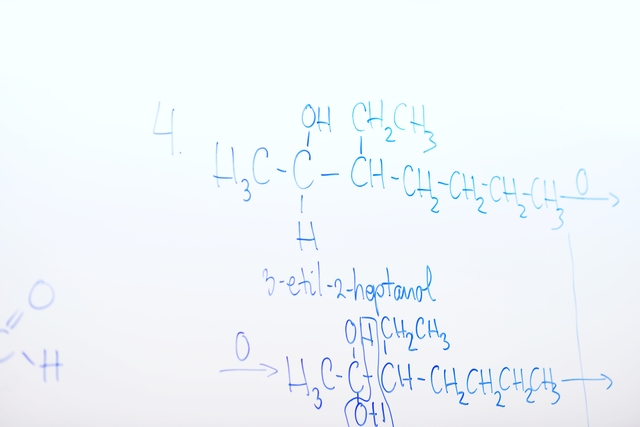 4.
OH CH2CH3
H3C-C-CH-CH2-CH2-CH2-CH3 O
H
3-etil-2-heptanol
O
H
OH CH2CH3
O H3C-C-CH-CH2CH2CH2CH3
OH